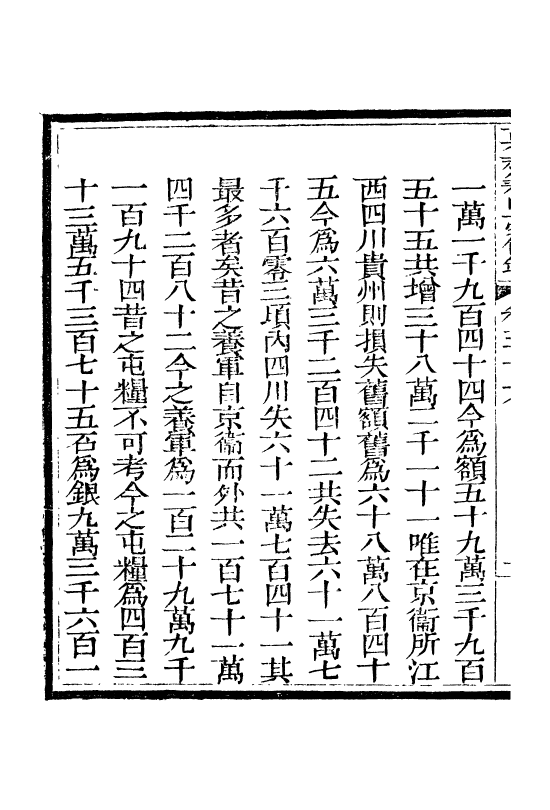 一萬一千九百四十四今爲額五十九萬三千九百
五十五共增三十八萬二千一十一唯在京衞所江
西四川貴州則損失舊額舊爲六十八萬八百四十
五今爲六萬三千二百四十二共失去六十一萬七
千六百零三頃內四川失六十一萬七百四十一其
最多者矣昔之養軍自京衞而外共一百七十一萬
四千二百八十二今之養軍爲一百二十九萬九千
一百九十四昔之屯糧不可考今之屯糧爲四百三
十三萬五千三百七十五石爲銀九萬三千六百一